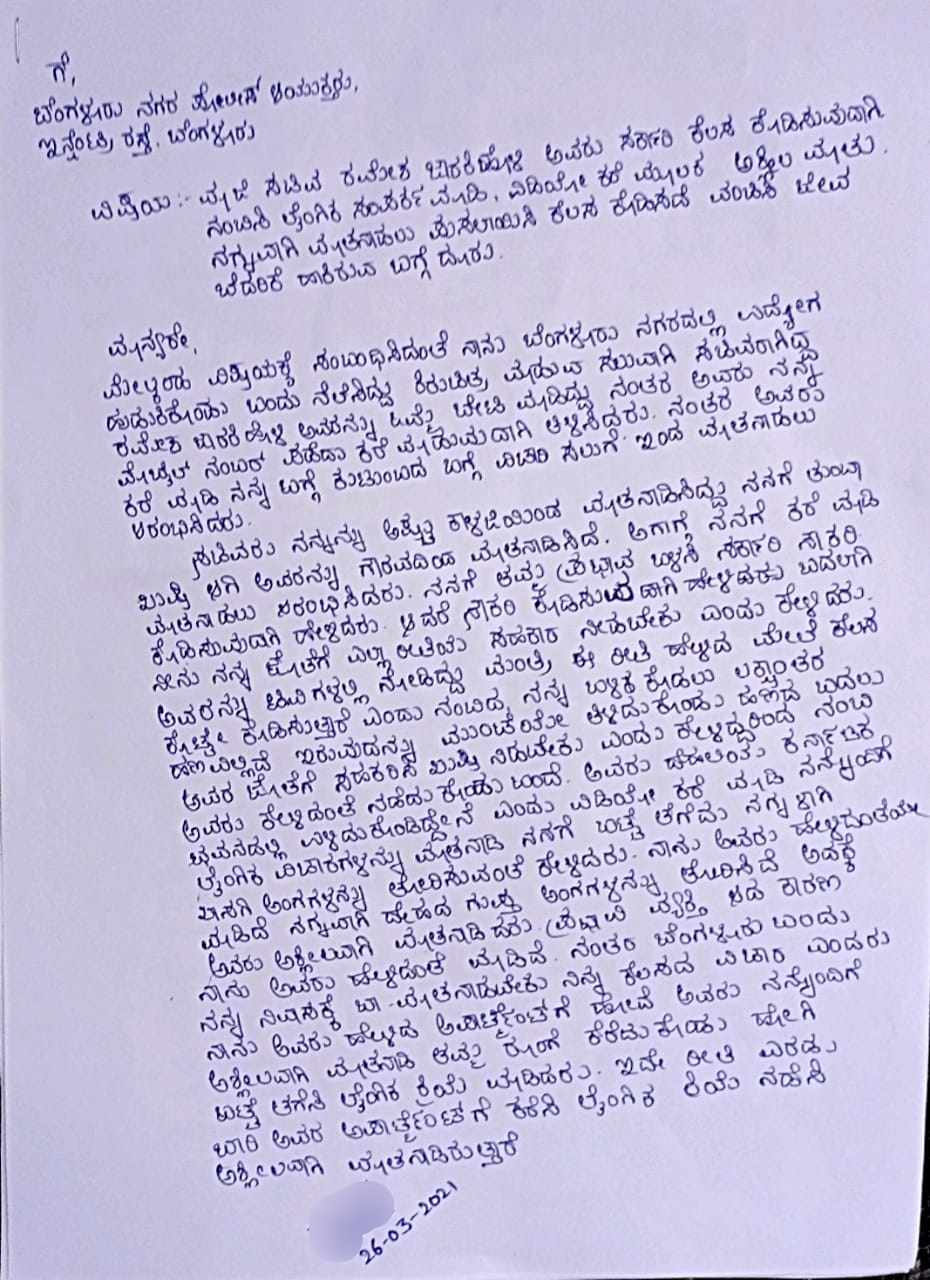 ಗೆ,
ಬೆಂಗಳೂರು ನಗರ ಪೋಲೀಸ್ ಆಯುಕ್ತರು,
ಇನ್ಫೆಂಟ್ರಿ ರಸ್ತೆ, ಬೆಂಗಳೂರು
ವಿಷಯ:- ಮಾಜಿ ಸಚಿವ ರಮೇಶ ಜಾರಕಿಹೊಳಿ ಅವರು ಸರ್ಕಾರಿ ಕೆಲಸ ಕೊಡಿಸುವುದಾಗಿ
ನಂಬಿಸಿ ಲೈಂಗಿಕ ಸಂಪರ್ಕ ಮಾಡಿ, ವಿಡಿಯೋ ಕರೆ ಮೂಲಕ ಅಶ್ಲೀಲ ಮಾತು.
ನಗ್ನವಾಗಿ ಮಾತನಾಡಲು ಪುಸಲಾಯಿಸಿ ಕೆಲಸ ಕೊಡಿಸದೆ ವಂಚಿಸಿ ಜೀವ
ಬೆದರಿಕೆ ಹಾಕಿರುವ ಬಗ್ಗೆ ದೂರು.
ಮಾನ್ಯರೇ,
ಮೇಲ್ಕಂಡ ವಿಷಯಕ್ಕೆ ಸಂಬಂಧಿಸಿದಂತೆ ನಾನು ಬೆಂಗಳೂರು ನಗರದಲ್ಲಿ ಉದ್ಯೋಗ
ಹುಡುಕಿಕೊಂಡು ಬಂದು ನೆಲೆಸಿದ್ದು ಕಿರುಚಿತ್ರ ಮಾಡುವ ಸಲುವಾಗಿ ಸಚಿವರಾಗಿದ್ದ
ರಮೇಶ ಜಾರಕಿಹೊಳಿ ಅವರನ್ನು ಒಮ್ಮೆ ಬೇಟಿ ಮಾಡಿದ್ದು ನಂತರ ಅವರು ನನ್ನ
ಮೊಬೈಲ್ ನಂಬರ್ ಪಡೆದು ಕರೆ ಮಾಡುವುದಾಗಿ ತಿಳಿಸಿದ್ದರು. ನಂತರ ಅವರು
ಕರೆ ಮಾಡಿ ನನ್ನ ಬಗ್ಗೆ ಕುಟುಂಬದ ಬಗ್ಗೆ ವಿಚಾರಿಸಿ ಸಲುಗೆ ಇಂದ ಮಾತನಾಡಲು
ಆರಂಭಿಸಿದರು.
ಸಚಿವರು ನನ್ನನ್ನು ಅಷ್ಟು ಕಾಳಜಿಯಿಂದ ಮಾತನಾಡಿಸಿದ್ದು ನನಗೆ ತುಂಬಾ
ಖುಷಿ ಆಗಿ ಅವರನ್ನು ಗೌರವದಿಂದ ಮಾತನಾಡಿಸಿದೆ. ಅಗಾಗ್ಗೆ ನನಗೆ ಕರೆ ಮಾಡಿ
ಮಾತನಾಡಲು ಆರಂಭಿಸಿದರು. ನನಗೆ ತಮ್ಮ ಪ್ರಭಾವ ಬಳಸಿ ಸರ್ಕಾರಿ ನೌಕರಿ
ಕೊಡಿಸುವುದಾಗಿ ಹೇಳಿದರು. ಆದರೆ ನೌಕರಿ ಕೊಡಿಸುವುದಾಗಿ ಹೇಳಿದರು ಬದಲಾಗಿ
ನೀನು ನನ್ನ ಜೊತೆಗೆ ಎಲ್ಲಾ ರೀತಿಯ ಸಹಕಾರ ನೀಡಬೇಕು ಎಂದು ಕೇಳಿದರು.
ಅವರನ್ನು ಟಿವಿಗಳಲ್ಲಿ ನೋಡಿದ್ದು ಮಂತ್ರಿ ಈ ರೀತಿ ಹೇಳಿದ ಮೇಲೆ ಕೆಲಸ
ಕೊಟ್ಟೇ ಕೊಡಿಸುತ್ತಾರೆ ಎಂದು ನಂಬಿದೆ, ನನ್ನ ಬಳಿ ಕೊಡಲು ಲಕ್ಷಾಂತರ
ಹಣವಿಲ್ಲದೆ ಇರುವುದನ್ನು ಮುಂಚೆಯೇ ತಿಳಿದುಕೊಂಡು ಹಣದ ಬದಲು
ಅವರ ಜೊತೆಗೆ ಸಹಕರಿಸಿ ಖುಷಿ ನೀಡಬೇಕು ಎಂದು ಕೇಳಿದ್ದರಿಂದ ನಂಬಿ
ಅವರು ಕೇಳಿದಂತೆ ನಡೆದುಕೊಂಡು ಬಂದೆ. ಅವರು ದೆಹಲಿಯ ಕರ್ನಾಟಕ
ಭವನದಲ್ಲಿ ಉಳಿದುಕೊಂಡಿದ್ದೇನೆ ಎಂದು ವಿಡಿಯೋ ಕರೆ ಮಾಡಿ ನನ್ನೊಂದಿಗೆ
ಲೈಂಗಿಕ ವಿಚಾರಗಳನ್ನು ಮಾತನಾಡಿ ನನಗೆ ಬಟ್ಟೆ ತೆಗೆದು ನಗ್ನಳಾಗಿ
ಖಾಸಗಿ ಅಂಗಗಳನ್ನು ತೋರಿಸುವಂತೆ ಕೇಳಿದರು. ನಾನು ಅವರು ಹೇಳಿದಂತೆಯೇ
ಮಾಡಿದೆ ನಗ್ನವಾಗಿ ದೇಹದ ಗುಪ್ತ ಅಂಗಗಳನ್ನು ತೋರಿಸಿದೆ ಅದಕ್ಕೆ
ಅವರು ಅಶ್ಲೀಲವಾಗಿ ಮಾತನಾಡಿದರು. ಪ್ರಭಾವಿ ವ್ಯಕ್ತಿ ಆದ ಕಾರಣ
ನಾನು ಅವರು ಹೇಳಿದಂತೆ ಮಾಡಿದೆ. ನಂತರ ಬೆಂಗಳೂರು ಬಂದು
ನನ್ನ ನಿವಾಸಕ್ಕೆ ಬಾ ಮಾತನಾಡಬೇಕು ನಿನ್ನ ಕೆಲಸದ ವಿಚಾರ ಎಂದರು
ನಾನು ಅವರು ಹೇಳಿದ ಅಪಾರ್ಟ್ಮೆಂಟ್‌ಗೆ ಹೋದೆ ಅವರು ನನ್ನೊಂದಿಗೆ
ಅಶ್ಲೀಲವಾಗಿ ಮಾತನಾಡಿ ತಮ್ಮ ರೂಂಗೆ ಕರೆದುಕೊಂಡು ಹೋಗಿ
ಬಟ್ಟೆ ತೆಗೆಸಿ ಲೈಂಗಿಕ ಕ್ರಿಯೆ ಮಾಡಿದರು. ಇದೇ ರೀತಿ ಎರಡು
ಬಾರಿ ಅವರ ಅಪಾರ್ಟ್ಮೆಂಟ್‌ಗೆ ಕರೆಸಿ ಲೈಂಗಿಕ ಕ್ರಿಯೆ ನಡೆಸಿ
ಅಶ್ಲೀಲವಾಗಿ ಮಾತನಾಡಿರುತ್ತಾರೆ
26-03-2021